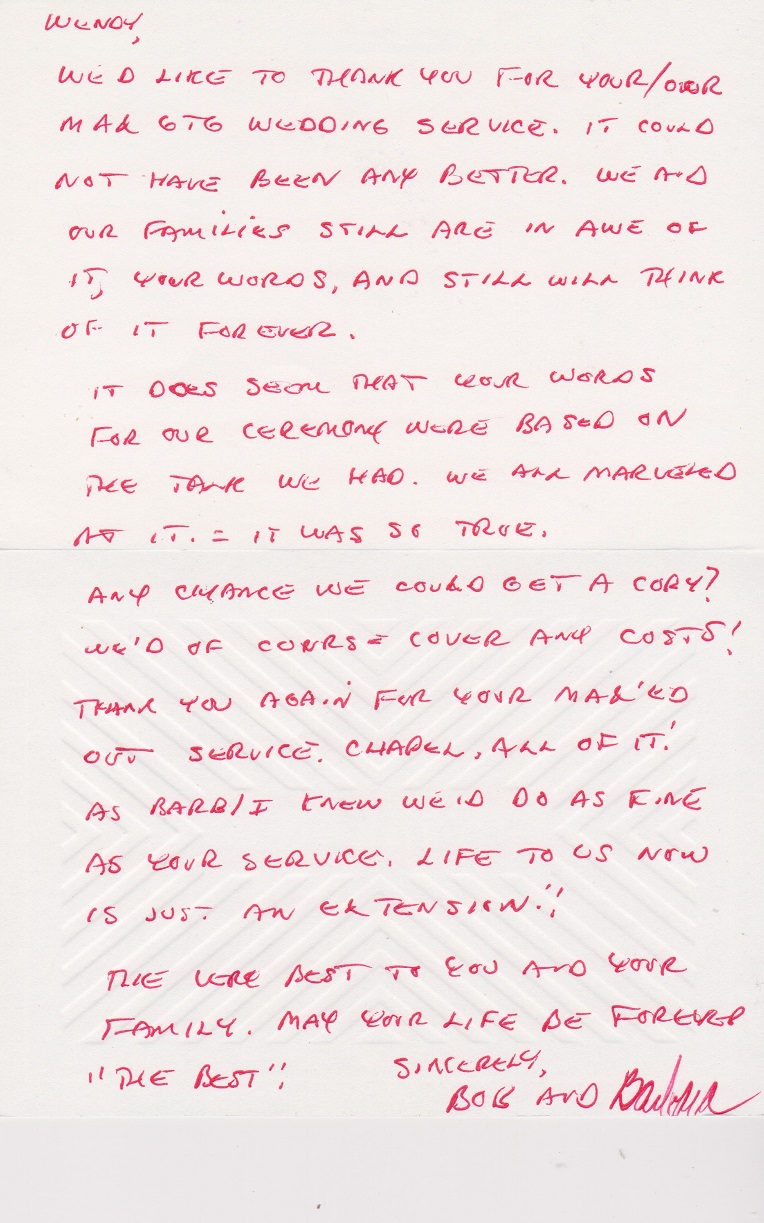 WENDY,
WE'D LIKE TO THANK YOU FOR YOUR/OUR
WEDDING SERVICE. IT COULD
NOT HAVE BEEN ANY BETTER. WE AND
OUR FAMILIES STILL ARE IN AWE OF
IT, YOUR WORDS, AND STILL WILL THINK
OF IT FOREVER.
IT DOES SEEM THAT YOUR WORDS
FOR OUR CEREMONY WERE BASED ON
THE TALK WE HAD. WE ALL MARVELED
AT IT. = IT WAS SO TRUE.
ANY CHANCE WE COULD GET A COPY?
WE'D OF COURSE COVER ANY COSTS!
THANK YOU AGAIN FOR YOUR
OUT SERVICE. CHAPEL, ALL OF IT!
AS BARB/I KNEW WE'D DO AS FINE
AS YOUR SERVICE. LIFE TO US NOW
IS JUST AN EXTENSION!!
THE VERY BEST TO YOU AND YOUR
FAMILY. MAY YOUR LIFE BE FOREVER
"THE BEST"!
SINCERELY,
BOB AND Barbara